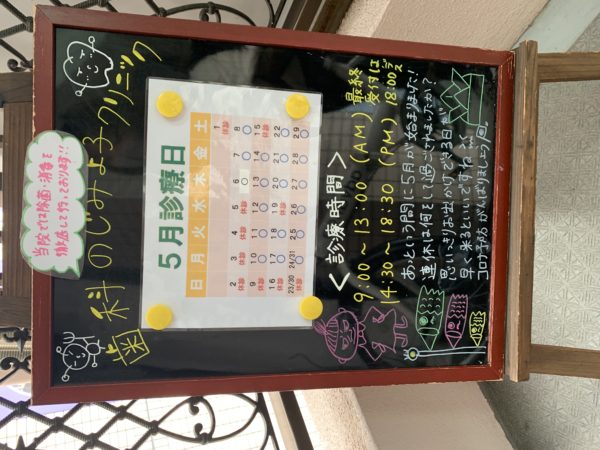 当院では除菌・消毒を
徹底して行っております!!
歯科のじみよ子クリニック
5月診療日
日 月 火 水 木 金 土
1
休診
2 3 4 5 6 7 8
9 10 11 12 13 14 15
16 17 18 19 20 21 22
23/30 24/31 25 26 27 28 29
<診療時間>
9:00〜13:00 (AM) 最終
14:30〜18:30 (PM) 受付は
18:00デス
あっという間に5月が始まりました!
連休は何をして過ごされましたか?
思いっきりお出かけできる日が
早く来るといいですね…
コロナ予防がんばりましょう